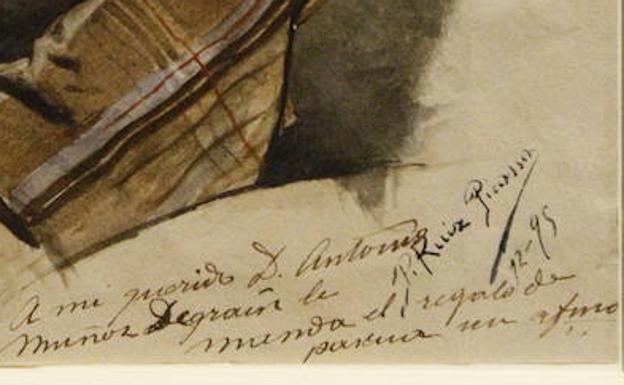 A mi querido D. Antonio
Muñoz Degrain le
manda el regalo de
pascua un afmo
P. Ruiz Picasso
12-95